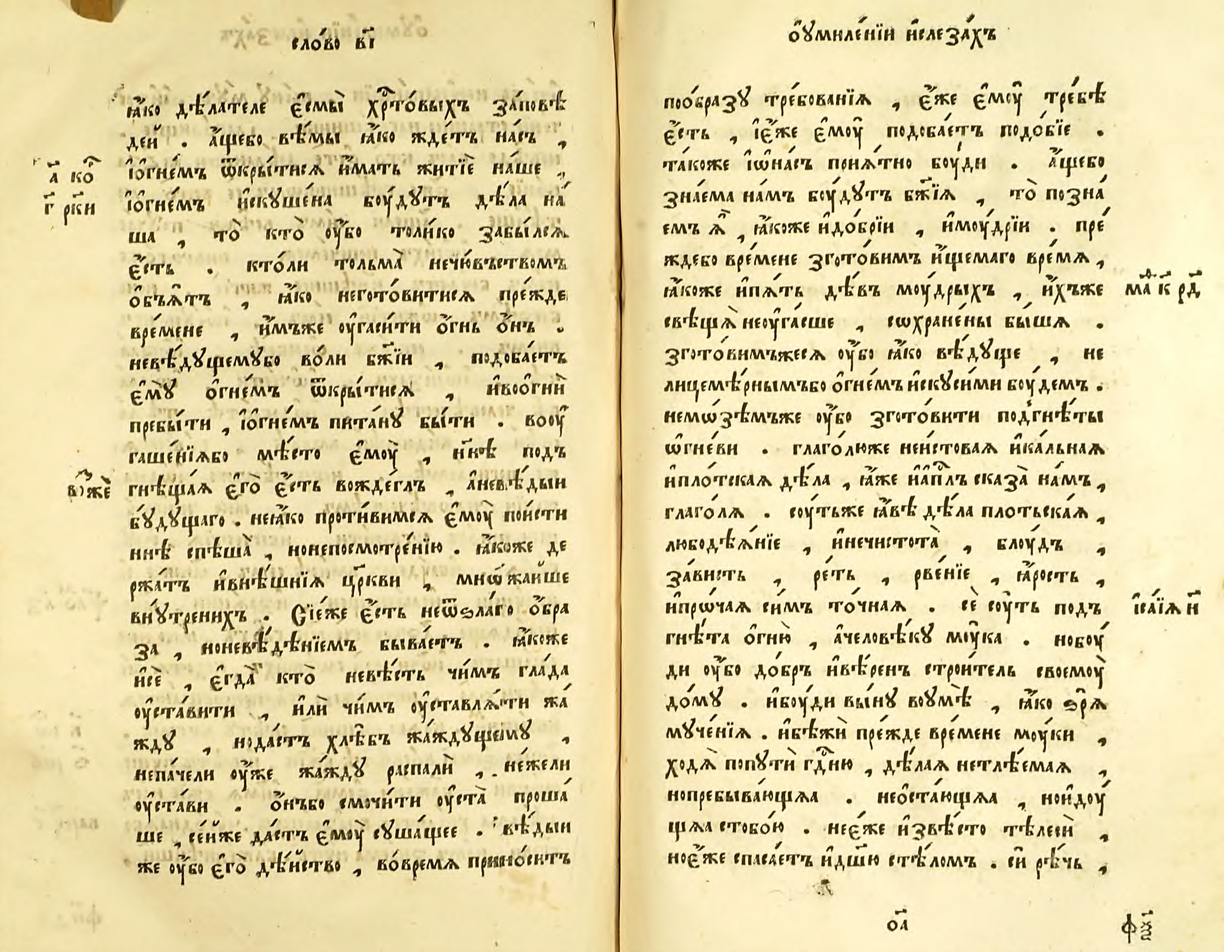 сло́во в҃і
ꙗ҆́ко дѣ́лателе є҆смы̀ хр҃то́выхъ за́повѣ
дей . а҆́щебо вѣ́мы ꙗ҆́ко жде́тъ на́съ ,
і҆ѻ҆гне́мъ ѿкры́тисѧ и҆́мать житїѐ на́ше ,
і҆ѻ҆гне́мъ и҆скꙋше́на бꙋ́дꙋтъ дѣ́ла на́
ша , то̀ кто̀ ᲂу҆́бо толи́ко забы́лсѧ
є҆́сть . кто́ли тольма̀ нечю́вьствомъ
ѻ҆бъѧ́тъ , ꙗ҆́ко негото́витисѧ пре́жде
вре́мене , и҆́мъже ᲂу҆гаси́ти ѻ҆́гнь ѻ҆́нъ .
невѣ́дꙋщемꙋбо во́ли бж҃їи , подоба́етъ
є҆мꙋ̀ ѻ҆гне́мъ ѿкры́тисѧ , и҆воѻ҆гнѝ
пребы́ти , і҆ѻ҆гне́мъ пита́нꙋ бы́ти . воᲂу҆
гаше́нїѧбо мѣ́сто є҆мꙋ̀ , нн҃ѣ подъ
гнѣ́щаѧ є҆го̀ є҆́сть вожде́глъ , а҆невѣ́дыи
бꙋ́дꙋщаго . неꙗ҆́ко проти́вимсѧ є҆мꙋ̀ пои́сти
ннѣ спѣша̀ , нонепосмотре́нїю . ꙗ҆́коже де
ржа́тъ и҆внѣ́шнїѧ цр҃кви , мнѡ́жайше
внꙋ́тренихъ . Сїе́же є҆́сть неѿѕла́го ѻ҆́бра
за ,ноневѣ́дѣнїемъ быва́етъ . ꙗ҆́коже
и҆сѐ , є҆гда̀ кто̀ невѣ́сть чи́мъ гла́да
ᲂу҆ста́вити , и҆лѝ чи́мъ ᲂу҆ставлѧ́ти жа́
ждꙋ , нода́стъ хлѣ́бъ жа́ждꙋщемꙋ ,
непа́чели ᲂу҆́же жа́ждꙋ распалѝ , не́жели
ᲂу҆ста́ви . ѻ҆́нъбо смочи́ти ᲂу҆ста̀ проша́
ше , се́йже да́стъ є҆мꙋ̀ сꙋша́щее . вѣ́дыи
же ᲂу҆́бо є҆го̀ дѣ́йство , во́время прино́ситъ
а҃ ко҃
г҃ рк҃и
ни́же
ѻ҆ᲂу҆миле́нїи и҆слеза́хъ
поо́бразꙋ тре́бованїѧ , є҆́же є҆мꙋ̀ тре́бѣ
є҆́сть , і҆є҆́же є҆мꙋ̀ подоба́етъ подо́бїе .
та́коже і҆ѡ҆на́съ прїѧ́тно бꙋ́ди . а҆́щебо
зна́ема на́мъ бꙋ́дꙋтъ бж҃їѧ , то̀ позна́
емъ ѧ҆̀ , ꙗ҆́коже и҆до́брїи , и҆мꙋ́дрїи . пре́
ждебо вре́мене згото́вимъ и҆́щемаго вре́мѧ ,
ꙗ҆́коже и҆пѧ́ть дѣ́въ мꙋ́дрыхъ , и҆́хъже
свѣщѧ̀ неᲂу҆га́сше , сѡхране́ны бы́шѧ .
згото́вимъжесѧ ᲂу҆́бо ꙗ҆́ко вѣ́дꙋще , не
лицемѣ́рнымъбо ѻ҆гне́мъ и҆скꙋси́ми бꙋ́демъ .
немѡ́зѣмъже ᲂу҆́бо згото́вити подгнѣ́ты
ѡ҆́гневи . глаго́люже неи́стоваѧ и҆ка́льнаѧ
и҆пло́тскаѧ дѣ́ла , ꙗ҆́же и҆ап҃лъ сказа̀ на́мъ ,
глаго́лѧ . сꙋ́тьже ꙗ҆́вѣ дѣ́ла пло́тьскаѧ ,
любодѣѧ́нїе , и҆нечистота̀ , блꙋ́дъ ,
за́висть , ре́ть , рве́нїе , ꙗ҆́рость ,
и҆прѡ́чаѧ си́мъ то́чнаѧ . сѐ сꙋ́ть подъ
гнѣ́та ѻ҆гню̀ , а҆человѣ́кꙋ мꙋ́ка . нобꙋ́
ди ᲂу҆́бо до́бръ и҆вѣ́ренъ строи́тель своемꙋ̀
до́мꙋ . и҆бꙋ́ди вы́нꙋ воᲂу҆мѣ̀ , ꙗ҆́ко ѕрѧ̀
мꙋче́нїѧ . и҆бѣжѝ пре́жде вре́мене мꙋ́ки ,
ходѧ̀ попꙋтѝ гд҃ню , дѣ́лаѧ нетлѣ́емаѧ ,
нопребыва́ющѧа . нео҆ста́ющѧа , нои҆дꙋ́
щѧа стобо́ю . неє҆́же и҆звѣ́сто тѣ́леси ,
ноє҆́же спаса́етъ и҆дш҃ю стѣ́ломъ . си рѣ́чь ,
маѳ к҃ рд҃
и҆са́їѧ н҃
о҃а